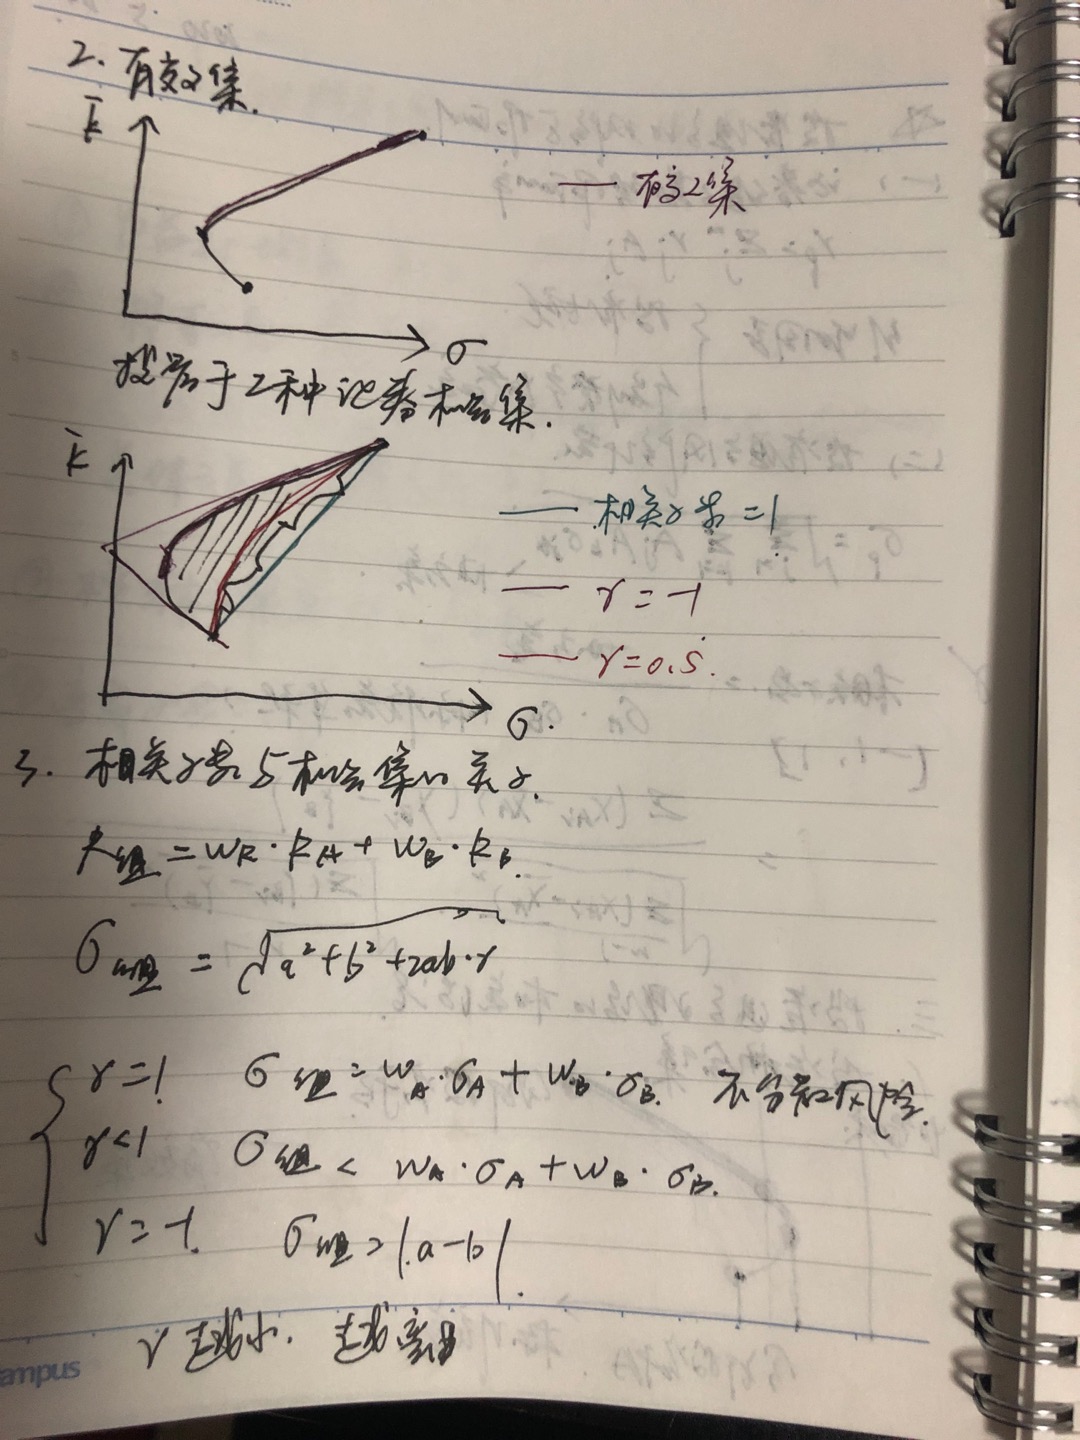 2. 有效集.
k̄
— 有效集
σ
投资于2种证券机会集.
k̄
— 相关系数=1
— r=-1
— r=0.5.
σ.
3. 相关系数与机会集的关系.
R组 = WR·RA + WB·RB.
σ组 = √a²+b²+2ab·r
r=1 σ组=WA·σA+WB·σB. 不分散风险.
r<1 σ组 < WA·σA+WB·σB.
r=-1. σ组=|a-b|.
r越小. 越弯曲
ampus